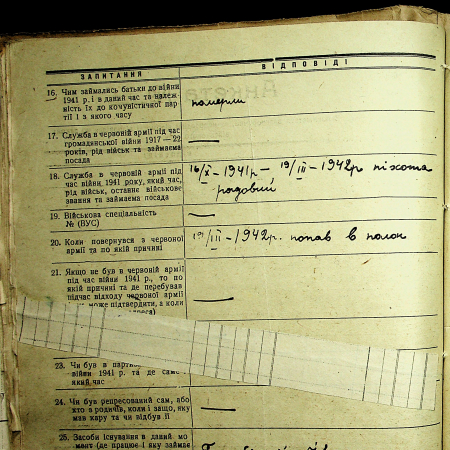 ЗАПИТАННЯ
ВІДПОВІДІ
16. Чим займались батьки до війни
1941 р. і в даний час та належ-
ність їх до комуністичної пар-
тії і з якого часу
померли
17. Служба в червоній армії під час
громадянської війни 1917—22
років, рід військ та займаєма
посада
—
18. Служба в червоній армії під
час війни 1941 року, який час,
рід військ, останнє військове
звання та займаєма посада
16/X – 1941р – 19/III – 1942р піхота
рядовий
19. Військова спеціальність
№ (ВУС)
—
20. Коли повернувся в червоної
армії та по якій причині
19/III – 1942р. попав в полон
21. Якщо не був в червоній армії
під час війни 1941 р., то по
якій причині та де перебував
підчас відходу червоної армії
може підтвердити, а коли
—
23. Чи був в
війни 1941 р. та де само
який час
24. Чи був репресований сам, або
хто з родичів, коли і защо, яку
мав кару та чи відбув її
—
25. Засоби існування в даний мо-
мент (де працює і яку займає